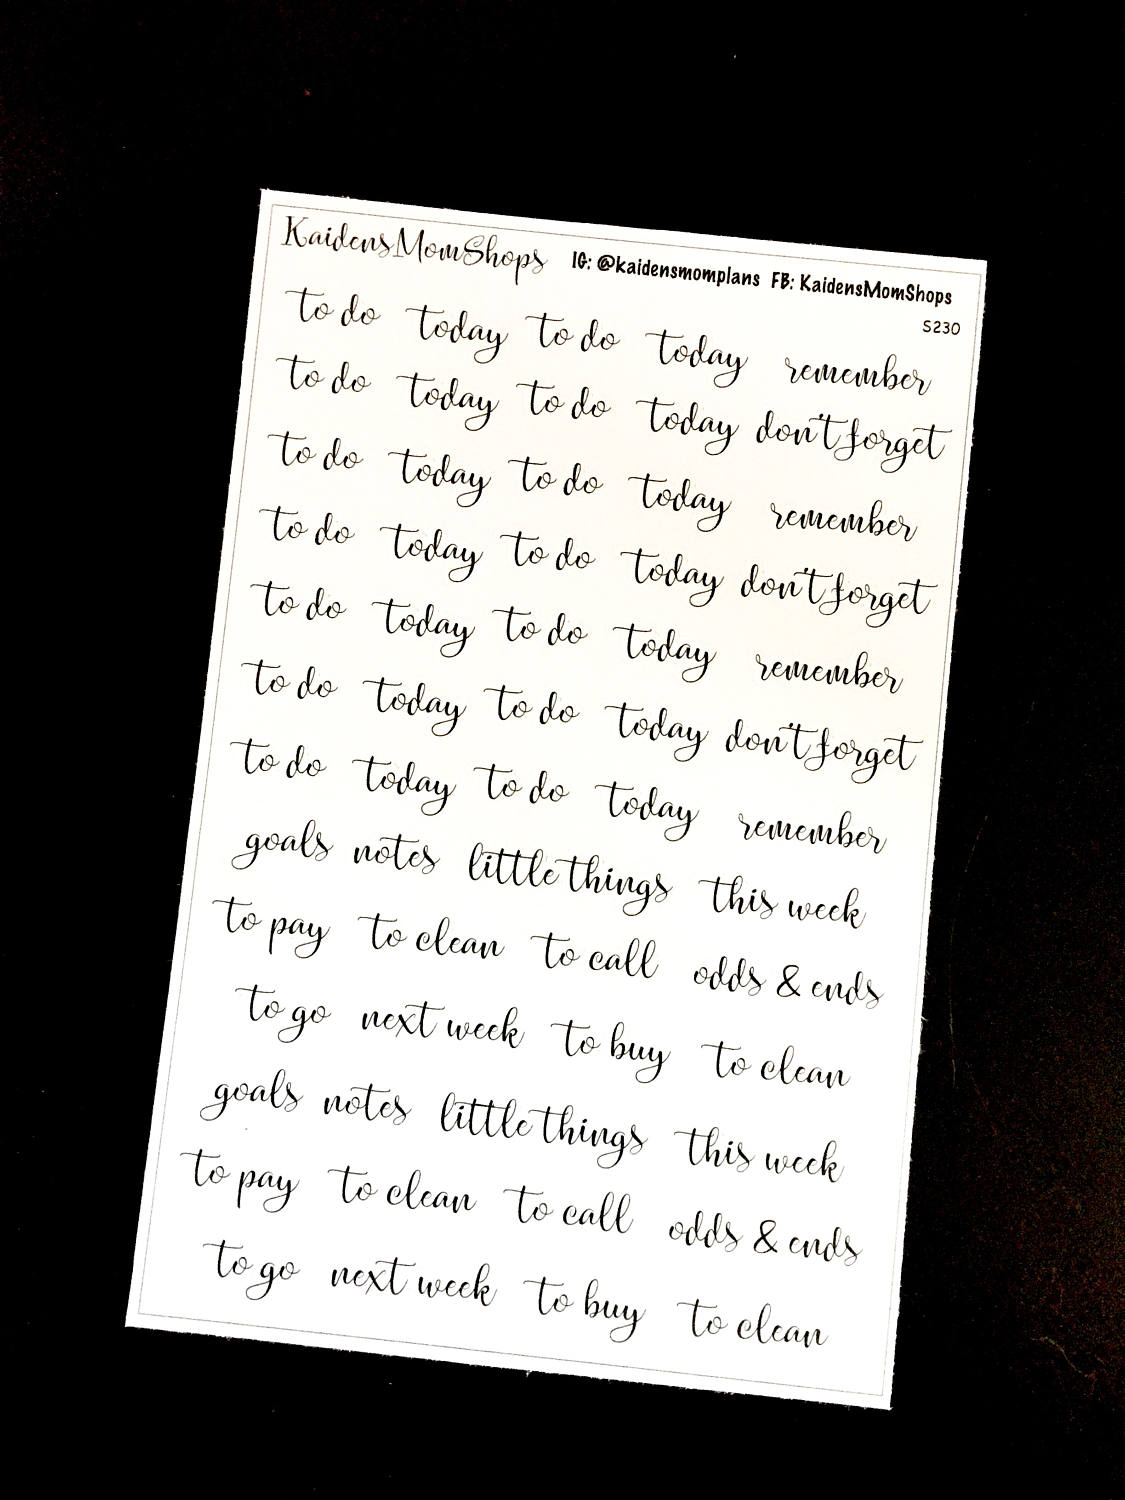 KaidensMomShops IG: @kaidensmomplans FB: KaidensMomShops
S230
to do today to do today remember
to do today to do today don't forget
to do today to do today remember
to do today to do today don't forget
to do today to do today remember
to do today to do today don't forget
to do today to do today remember
goals notes little things this week
to pay to clean to call odds & ends
to go next week to buy to clean
goals notes little things this week
to pay to clean to call odds & ends
to go next week to buy to clean